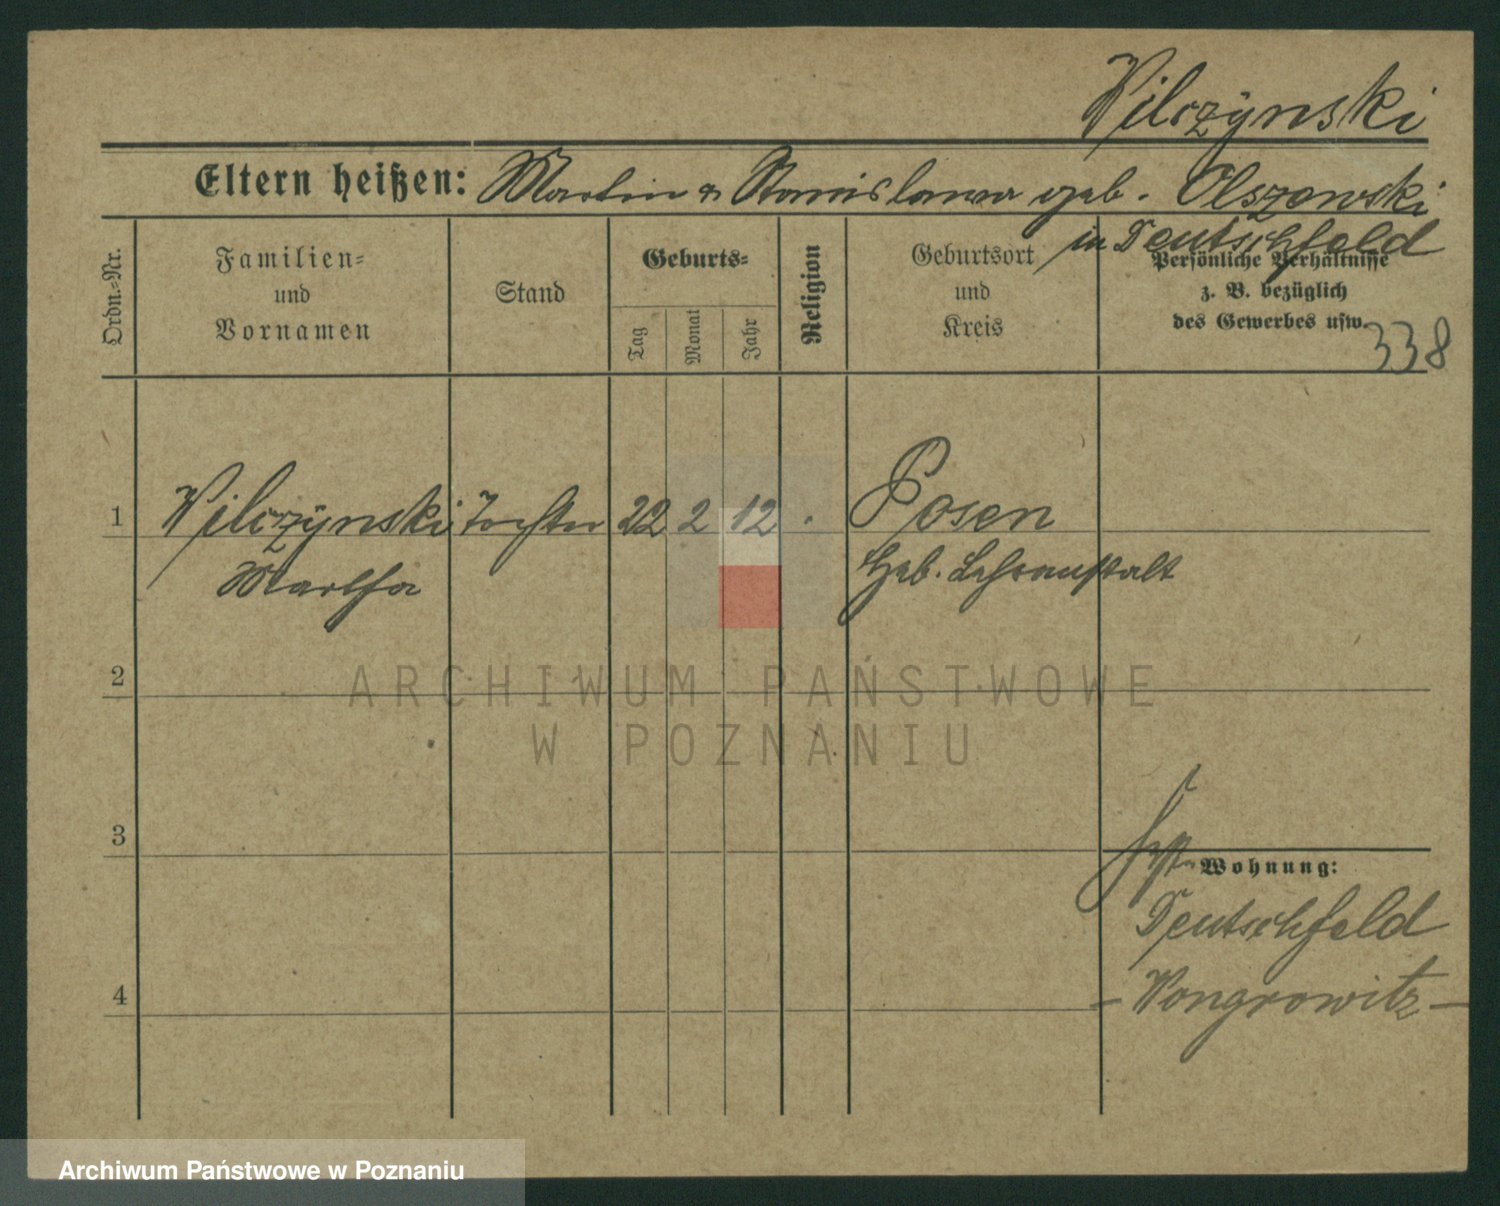 Wilczynski
Eltern heißen: Martin & Stanislawa geb. Olszewski
in Deutschfeld
Ordn.-Nr.
Familien-
und
Vornamen
Stand
Geburts-
Tag
Monat
Jahr
Religion
Geburtsort
und
Kreis
Persönliche Verhältnisse
z. B. bezüglich
des Gewerbes usw.
338
1 Wilczynski Tochter 22 2 12 Posen
Martha Heb. Lehranstalt
ARCHIWUM PAŃSTWOWE
W POZNANIU
2
3
Wohnung:
Deutschfeld
4
- Wongrowitz -
Archiwum Państwowe w Poznaniu